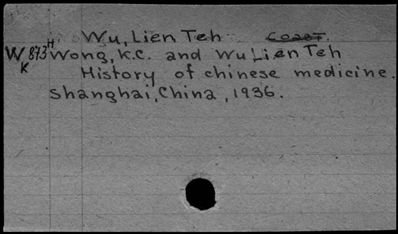 Wu, Lien Teh
W 873 H Wong, K.C. and Wu Lien Teh
K History of chinese medicine.
Shanghai, China, 1936.